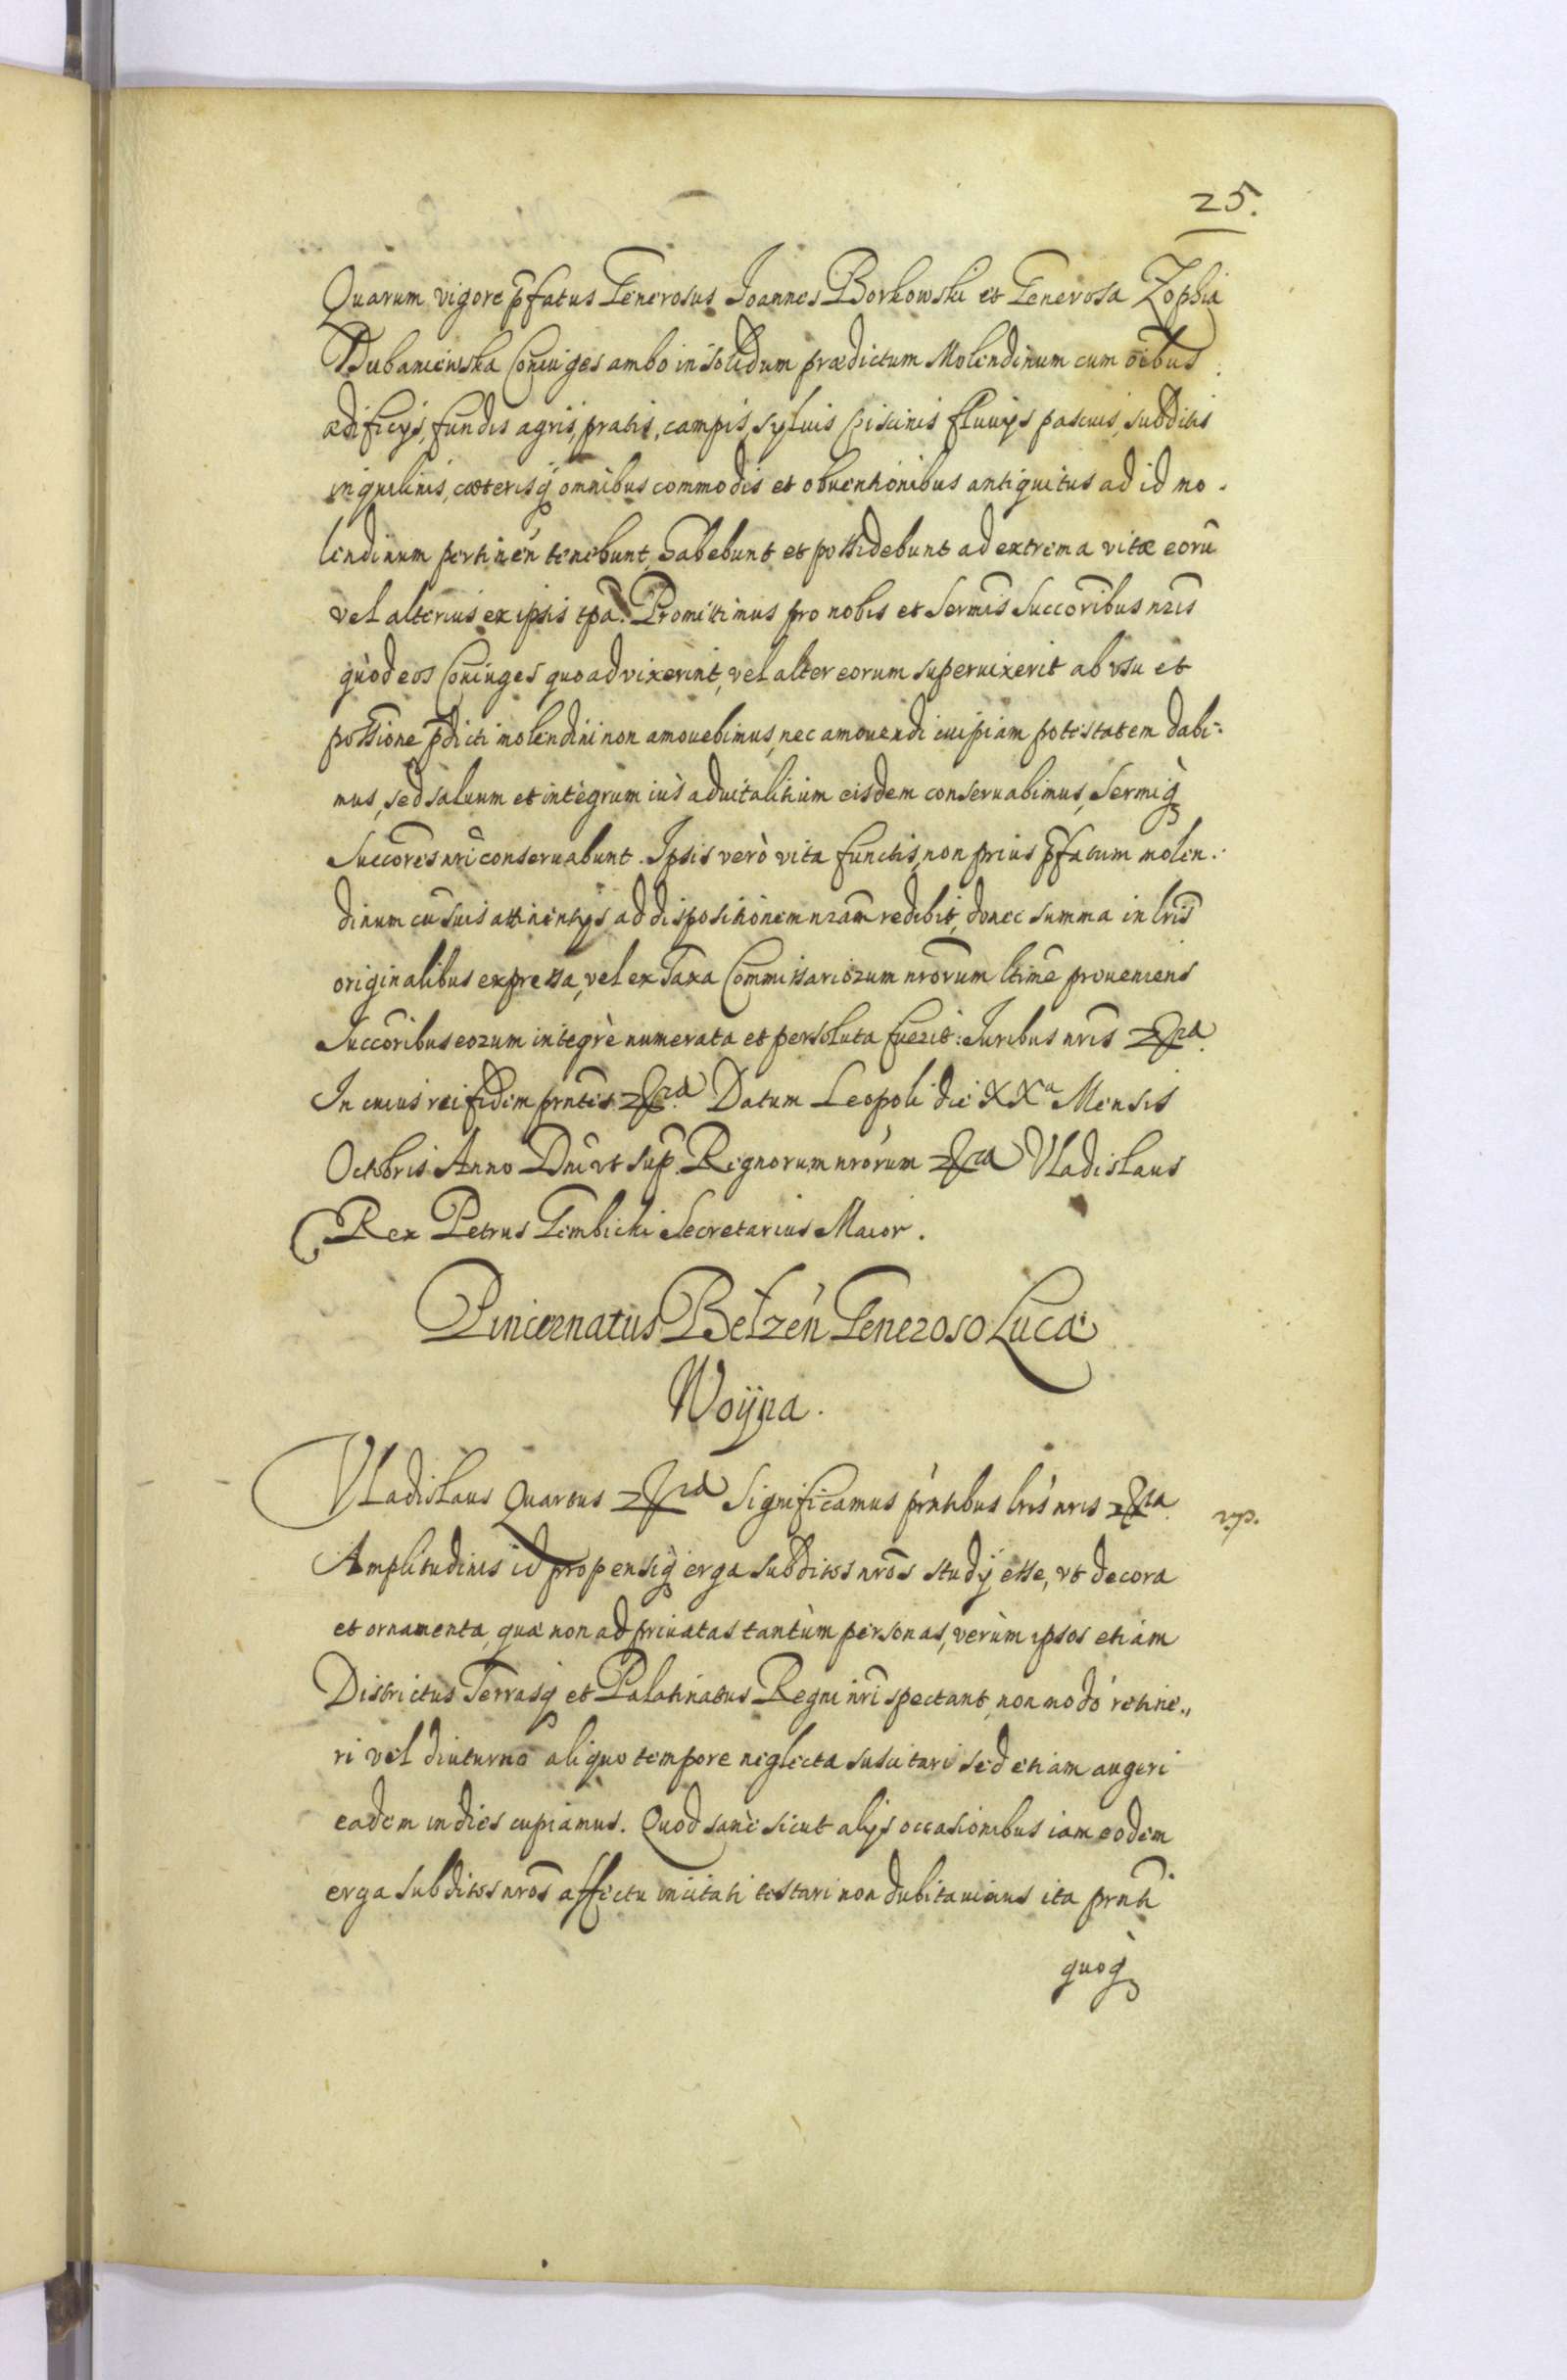 25.
Quarum vigore p̃fatus Generosus Joannes Borkowski et Generosa Zophia
Dubaniewska Coniuges ambo in solidum prædictum Molendinum cum oibus
ædificÿs, fundis agris, pratis, campis, syluis piscinis fluuÿs pascuis, subditis
inquilinis, cæterisq̃ omnibus commodis et obuentionibus antiquitus ad id mo-
lendinum pertineñ tenebunt, habebunt et possidebunt ad extrema vitæ eorũ
vel alterius ex ipsis tp̃a. Promittimus pro nobis et Sermis Succoribus nris
quòd eos Coniuges quoad vixerint, vel alter eorum superuixerit ab vsu et
possione p̃dicti molendini non amouebimus, nec amouendi cuipiam potestatem dabi-
mus, sed saluum et integrum iùs aduitalitium eisdem conseruabimus, Sermiq̃
Succores nri conseruabunt. Ipsis verò vita functis, non prius p̃fatum molen-
dinum cũ suis attinentÿs ad dispositionem nram redibit, donec summa in lris
originalibus expressa, vel ex Taxa Commissariorum nrorum ltime proueniens
Succoribus eorum integrè numerata et persoluta fuerit: Iuribus nris &ra.
In cuius rei fidem prntes &ra. Datum Leopoli die XXa Mensis
Octobris Anno Dni vt sup. Regnorum nrorum &ra Vladislaus
Rex Petrus Gembicki Secretarius Maior.
Pincernatus Belzeń Generoso Lucæ
Woÿna.
Vladislaus Quartus &ra Significamus prntibus lris nris &ra.
Amplitudinis id propensiq̃ erga subditos nros studÿ esse, vt decora
et ornamenta, quæ non ad priuatas tantùm personas, verùm ipsos etiam
Districtus Terrasq̃ et Palatinatus Regni nri spectant, non modò retine„
ri vel diuturno aliquo tempore neglecta suscitari sed etiam augeri
eadem in dies cupiamus. Quod sanè sicut alÿs occasionibus iam eodem
erga subditos nros affectu incitati testari non dubitauimus ita prnti
quoq̃